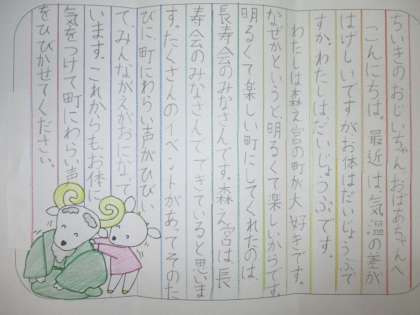 ちいきのおじいちゃんおばあちゃんへ
こんにちは。最近は気温の差が
はげしいですがお体はだいじょうぶで
すか。わたしはだいじょうぶです。
わたしは森え宮の町が大好きです。
なぜかというと、明るくて楽しいからです。
明るくて楽しい町にしてくれたのは、
長寿会のみなさんです。森え宮は長
寿会のみなさんでできていると思いま
す。たくさんのイベントがあってそのた
びに町にわらい声がひびい
てみんながえがおになって
います。これからもお体に
気をつけて町にわらい声
をひびかせてください。